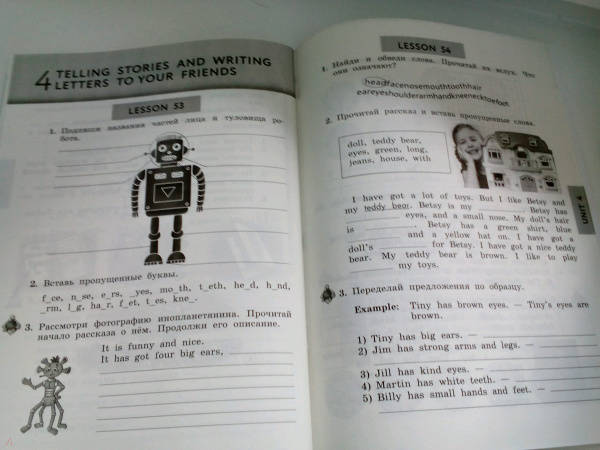 4 TELLING STORIES AND WRITING
LETTERS TO YOUR FRIENDS
LESSON 53
1. Подпиши названия частей лица и туловища ро-
бота.
2. Вставь пропущенные буквы.
f_ce, n_se, e_rs, _yes, mo_th, t_eth, he_d, h_nd,
_rm, l_g, ha_r, f_et, t_es, kne_.
3. Рассмотри фотографию инопланетянина. Прочитай
начало рассказа о нём. Продолжи его описание.
It is funny and nice.
It has got four big ears,
LESSON 54
1. Найди и обведи слова. Прочитай их вслух. Что
они означают?
headfacenosemouthtoothhair
eareyeshoulderarmhandkneenecktoefoot
2. Прочитай рассказ и вставь пропущенные слова.
doll, teddy bear,
eyes, green, long,
jeans, house, with
I have got a lot of toys. But I like Betsy and
my teddy bear. Betsy is my ________. Betsy has
________ eyes, and a small nose. My doll's hair
is ________. Betsy has a green shirt, blue
________ and a yellow hat on. I have got a
doll's ________ for Betsy. I have got a nice teddy
bear. My teddy bear is brown. I like to play
________ my toys.
UNIT 4
3. Переделай предложения по образцу.
Example: Tiny has brown eyes. — Tiny's eyes are
brown.
1) Tiny has big ears. —
2) Jim has strong arms and legs. —
3) Jill has kind eyes. —
4) Martin has white teeth. —
5) Billy has small hands and feet. —